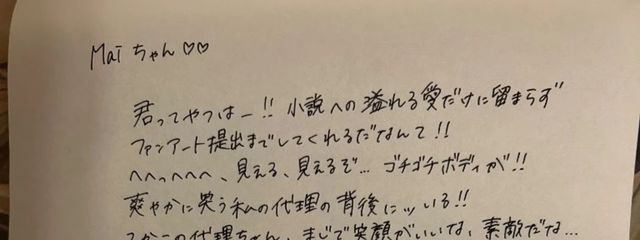 Maiちゃん♡♡
君ってやつはー!! 小説への溢れる愛だけに留まらず
ファンアート提出までしてくれるだなんて!!
へへっへへへ、見える、見えるぞ… ゴチゴチボディが!!
爽やかに笑う私の代理の背後にッいる!!
この代理ちゃん、まじで笑顔がいいな、素敵だな…